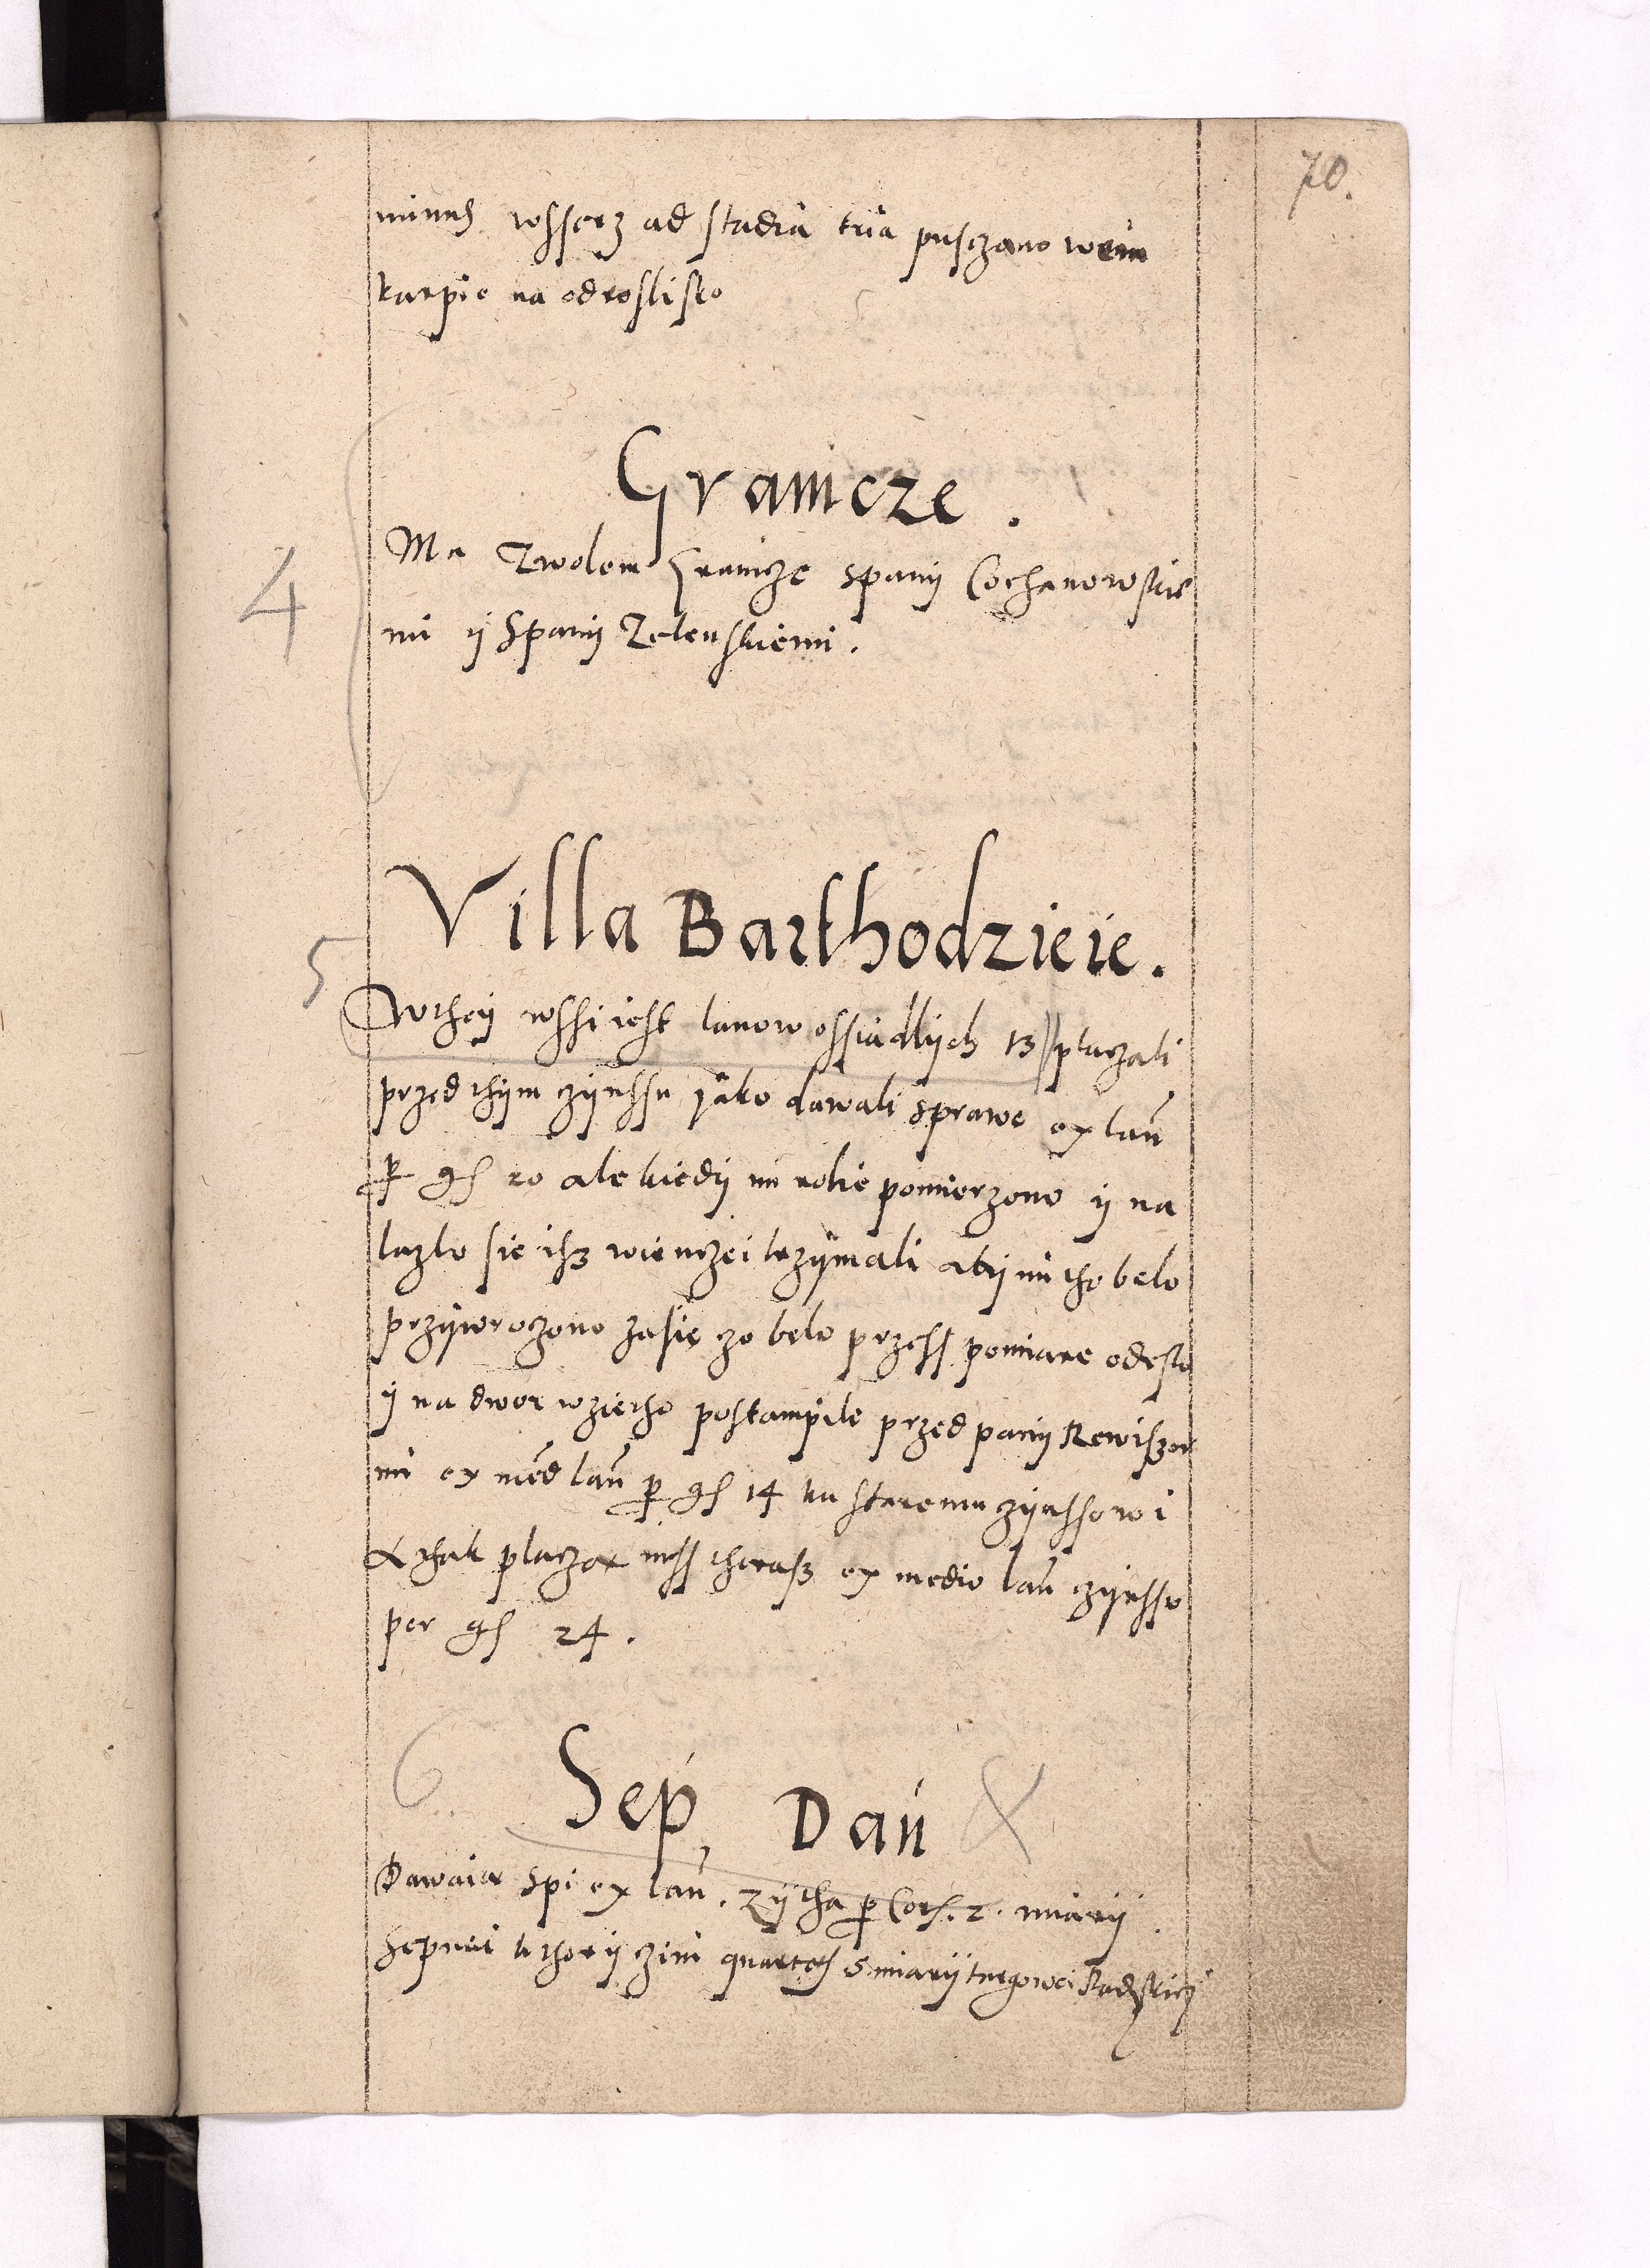 70.
minus wsserz ad stadia tria pusczano wem
karpie na odroslisko
Granicze.
4
Ma Zwolem Granicze spany Cochanowskie
mi y Spany Zelenskiemi.
Villa Barthodzieie.
5
Wthey wssi iest lanow ossiadlych 13 placzali
przed thym czynssu jako dawali sprawe ex lan
p gs 20 ale kiedy im rolie pomierzono y na
lazlo sie isz wienczei trzymali aby im tho belo
przywroczono zasie czo belo przess pomiare odesslo
y na dwor wzietho postampile przed pany Rewiszor
mi ex med lan p gs 14 ku staremu czynssowi
A thak placzą inss theraz ex medio lan czynssu
per gs 24.
6
Sep Dan
Dawaia spi ex lan. Zytha p Cor. 2. miary
Sepnei kthory czini quartas 5 miary targowei Radomskiej